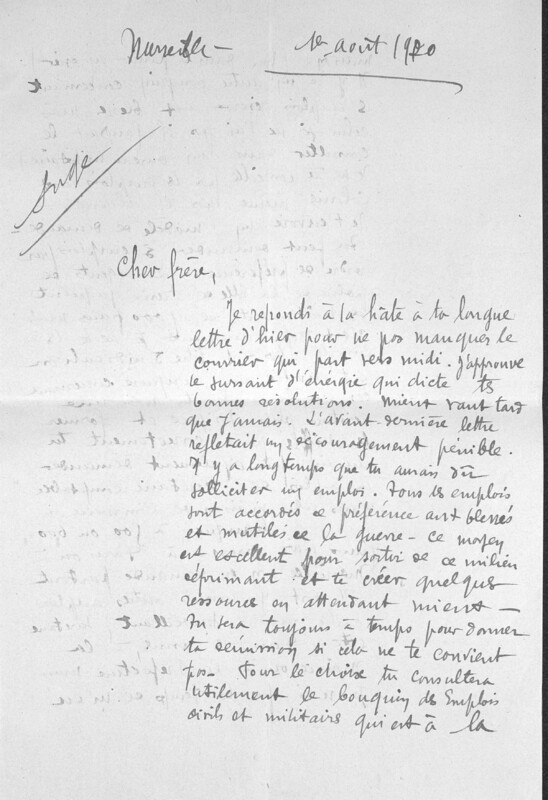 Marseille - 1er août 1920
Cher frère,
Je repondi à la hâte à ta longue
lettre d'hier pour ne pas manquer le
courrier qui part vers midi. J'approuve
le sursaut d'énergie qui dicte tes
bonnes résolutions. Mieux vaut tard
que jamais. L'avant-dernière lettre
reflétait un découragement pénible.
Il y a longtemps que tu aurais dû
solliciter un emploi. Tous les emplois
sont accordés de préférence aux blessés
et mutilés de la guerre - ce moyen
est excellent pour sortir de ce milieu
déprimant et te créer quelques
ressource en attendant mieux -
Tu sera toujours à temps pour donner
ta démission si cela ne te convient
pas - Pour le choix tu consultera
utilement le bouquin des Emplois
civils et militaire qui est à la